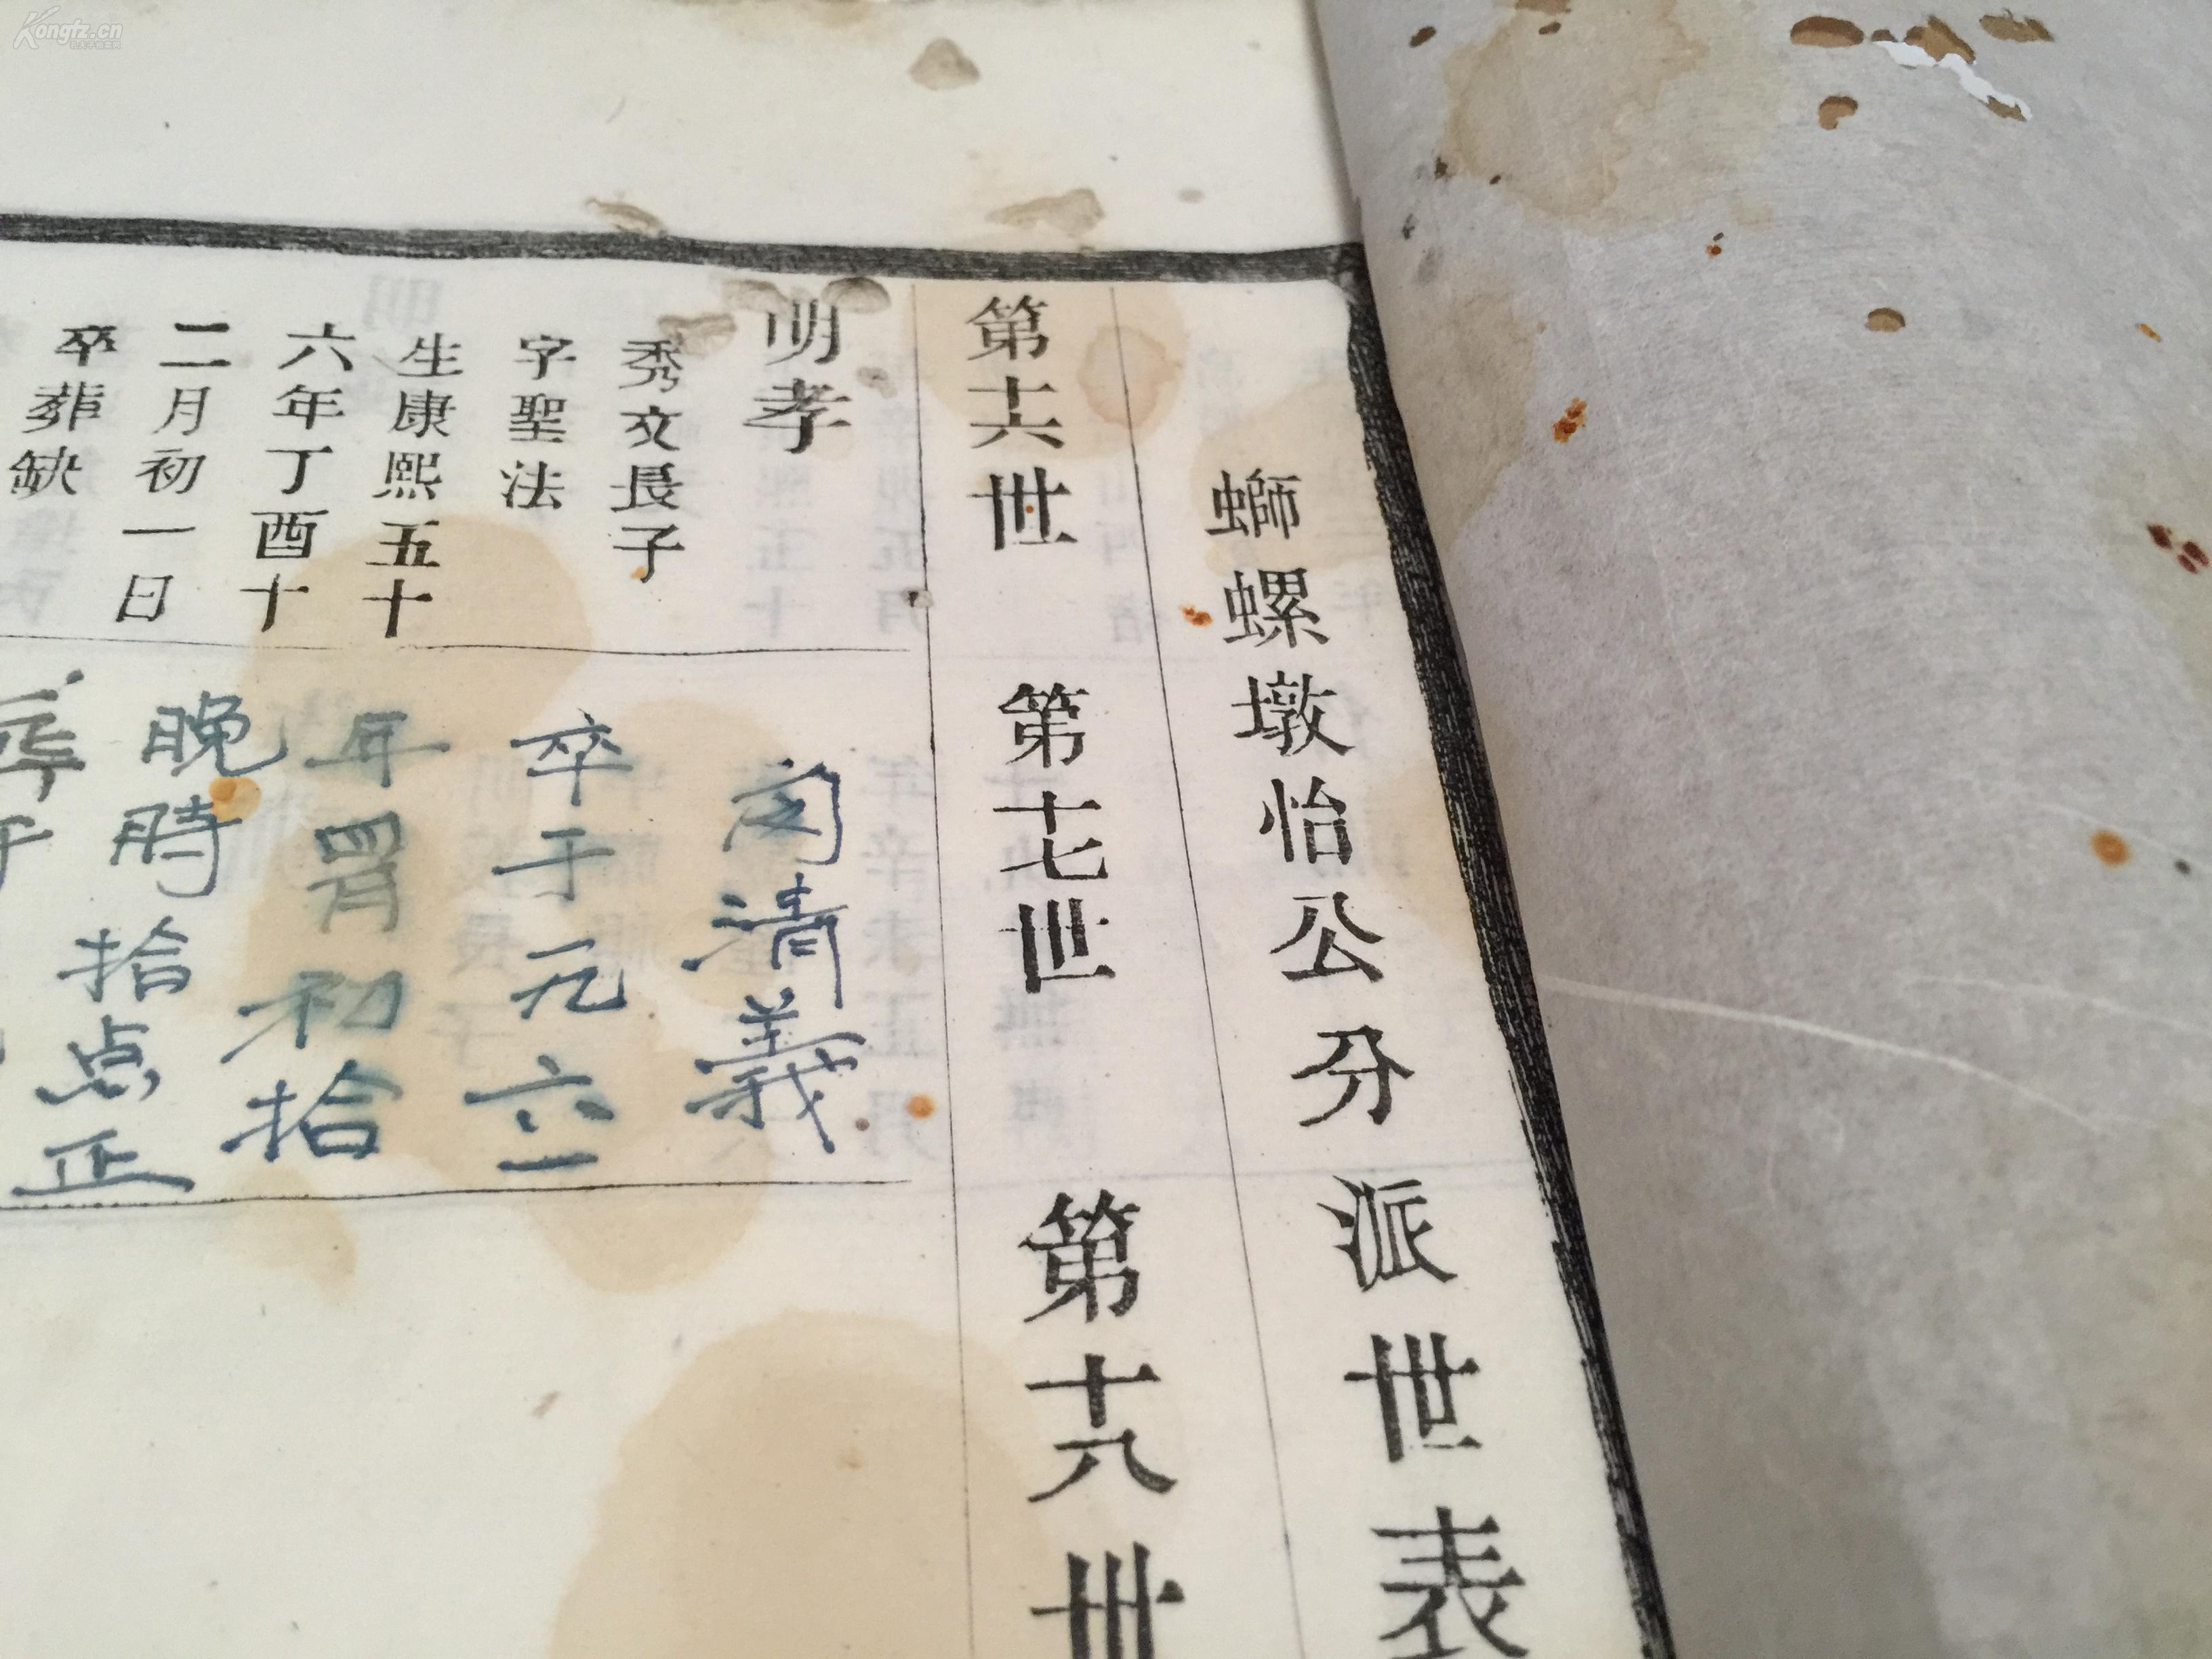 螄螺墩怡公分派世表
第十六世
第十七世
第十八世
明孝
秀文長子
字聖法
生康熙五十
六年丁酉十
二月初一日
卒葬缺
清義
卒于元六一
年 初拾
晚時拾点正
Kongfz.cn